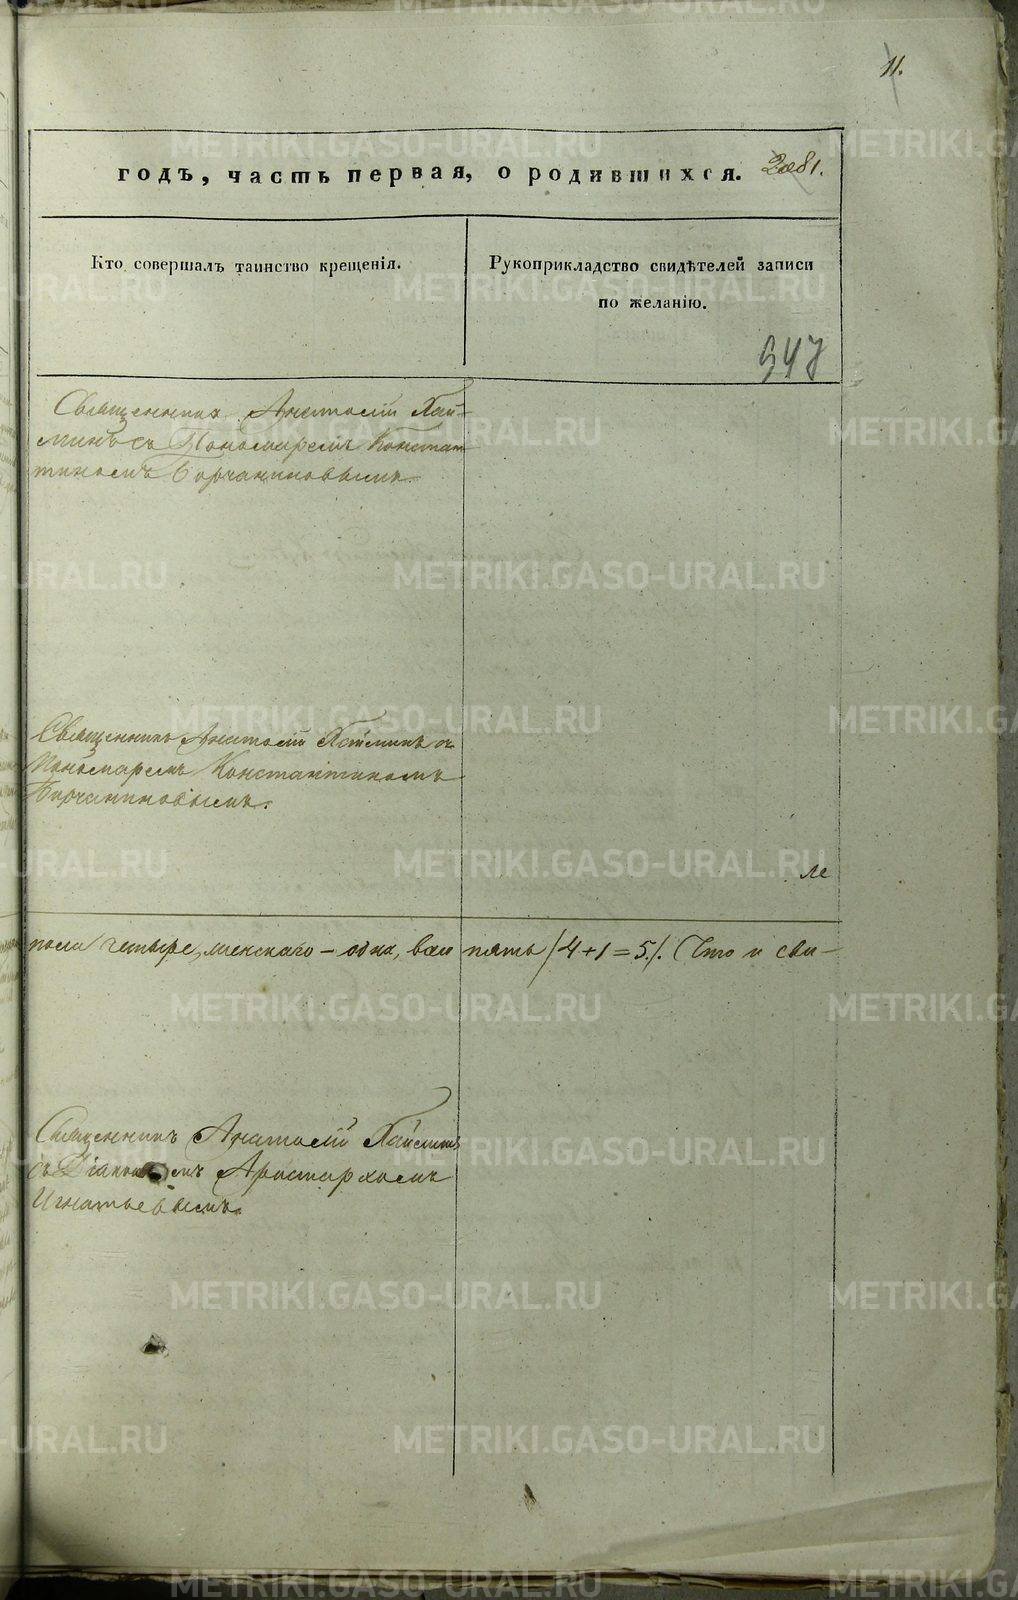 11.
годъ, часть первая, о родившихся.
Кто совершалъ таинство крещенія.
Рукоприкладство свидѣтелей записи
по желанію.
947
Священникъ Анатолій Хай-
минъ съ Пономаремъ Констан-
тиномъ Борчаниновымъ.
Священникъ Анатолій Хайминъ съ
Пономаремъ Константиномъ
Борчаниновымъ.
пола четыре, женскаго – одна, всѣхъ пять (4+1=5). Что и сви-
Священникъ Анатолій Хайминъ
съ Діакономъ Аристархомъ
Игнатьевымъ.
METRIKI.GASO-URAL.RU